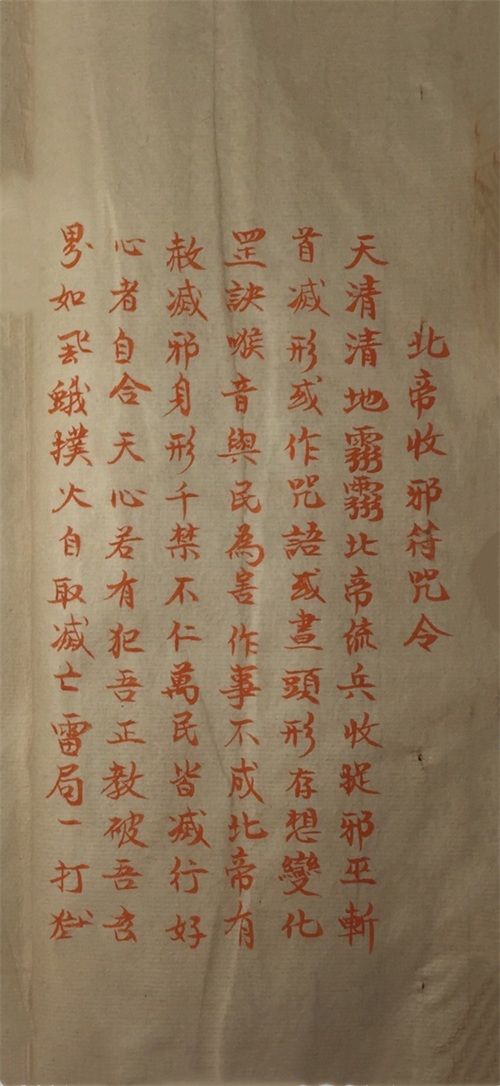 北帝收邪符咒令
天清清地霧霧北帝流兵收捉邪巫斬
首滅形或作咒語或畫頭形存想變化
罡訣喉音與民為害作事不成北帝有
敕滅邪身形千禁不仁萬民皆滅行好
心者自合天心若有犯吾正教破吾玄
界如飛蛾撲火自取滅亡雷局一打